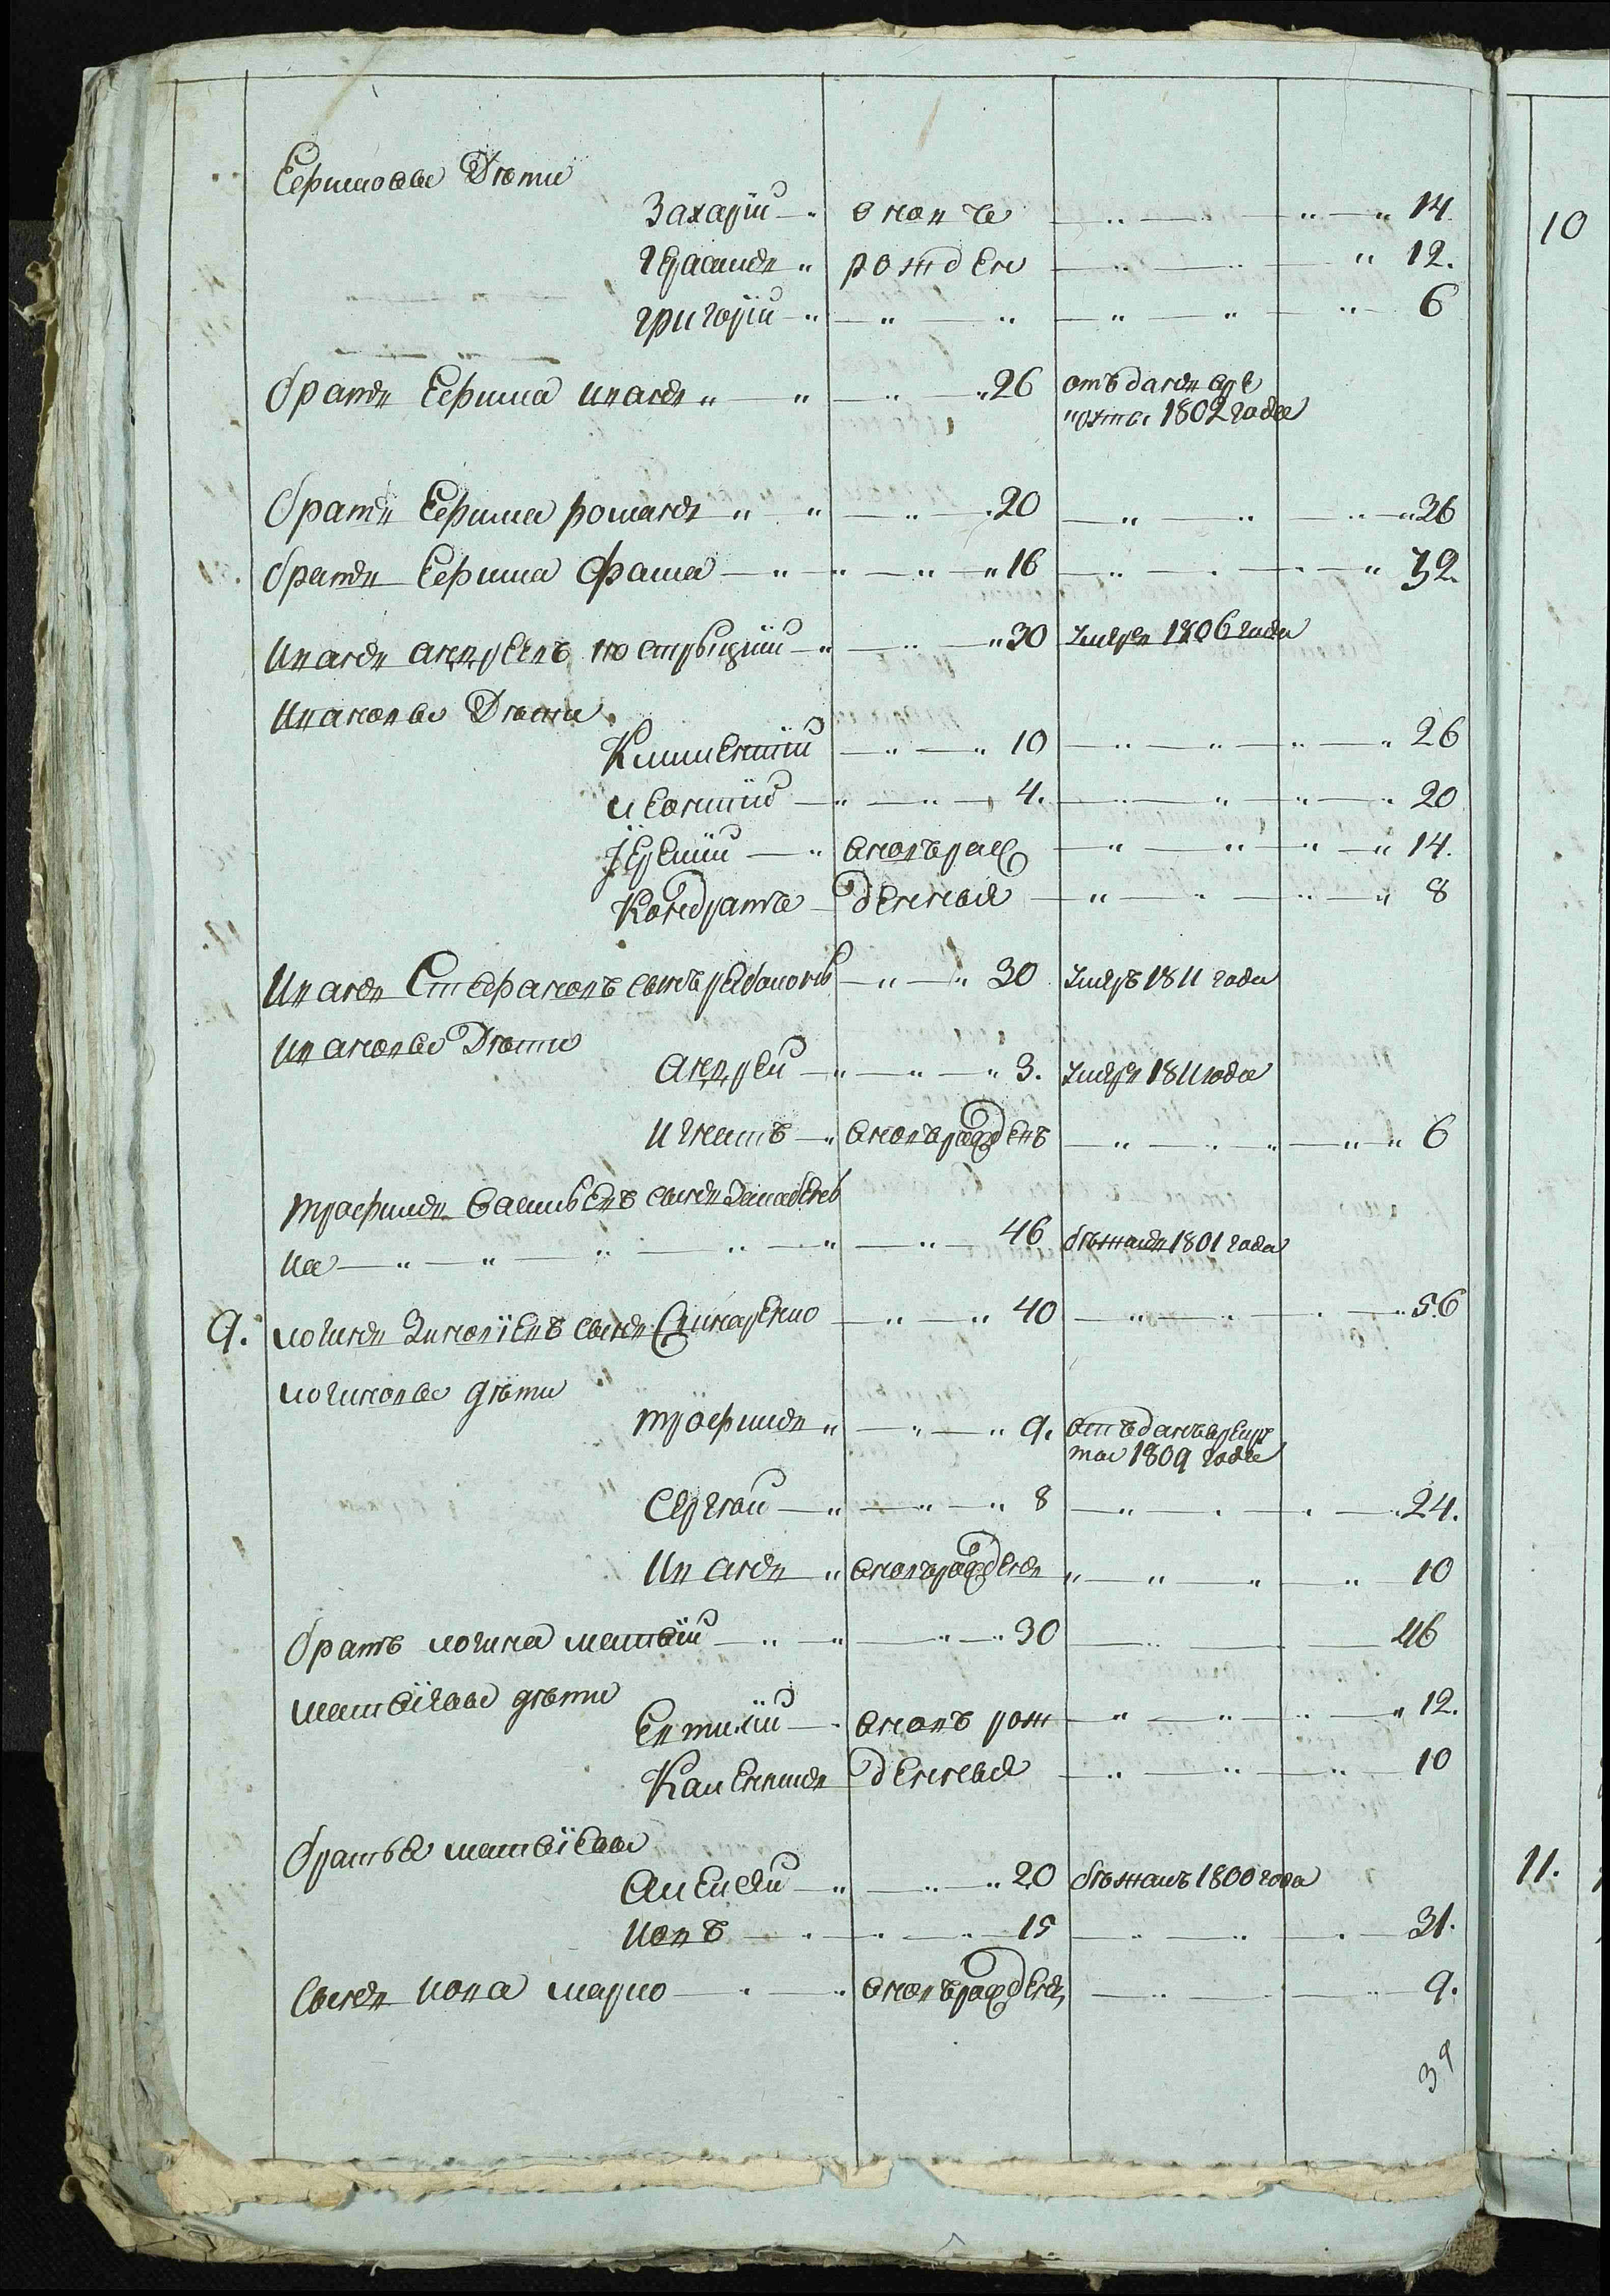 Ефимовы Дѣти
Захарїй вновь 14.
Герасимъ рожден 12.
Григорїй 6
братъ Ефима Иванъ 26 отъданъ врекруты 1802 года
братъ Ефима Романъ 20 36
братъ Ефима Фома 16 32.
Иванъ Андреевъ 30 Умеръ 1806 года
Ивановы Дѣти
Климентїй 10 26
Леонтїй 4. 20
Іеремїй вновьрож 14.
Кондратъ денныя 8
Иванъ Стефановъ сынъ 30 Умеръ 1811 года
Ивановы Дѣти
Андрей 3. Умеръ 1811 года
Игнатъ вновьрожденъ 6
Трофимъ Васильевъ сынъ
ка 46 бѣжалъ 1801 года
9. Логинъ Зиновїевъ сынъ 40 56
Логиновы дѣти
Трофимъ 9. отъданъврекру
ты 1809 года
Сергѣй 8 24.
Иванъ вновьрожденъ 10
братъ Логина Матвїй 30 46
Матвїевы дѣти
Евтихїй вновь рож 12.
денныя 10
братья Матвїевы
Алексѣй 20 бѣжалъ 1800 года
Иовъ 15 31.
сынъ Иова Марко вновьрожденъ 9.
39
10
11.